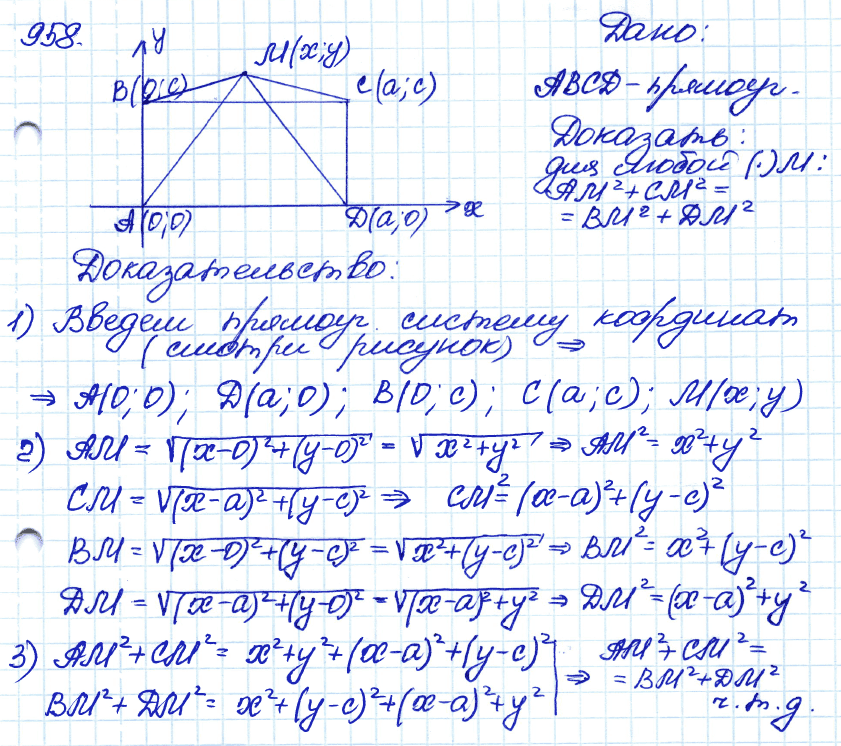 958.
y
M(x;y)
B(0;c)
C(a;c)
A(0;0)
D(a;0)
x
Дано:
ABCD – прямоуг.
Доказать:
для любой (·)M:
AM²+CM²=
=BM²+DM²
Доказательство:
1) Введем прямоуг. систему координат
(смотри рисунок) ⇒
⇒ A(0;0); D(a;0); B(0;c); C(a;c); M(x;y)
2) AM = √((x-0)²+(y-0)²) = √(x²+y²) ⇒ AM²= x²+y²
CM = √((x-a)²+(y-c)²) ⇒ CM²= (x-a)²+(y-c)²
BM = √((x-0)²+(y-c)²) = √(x²+(y-c)²) ⇒ BM²= x²+(y-c)²
DM = √((x-a)²+(y-0)²) = √((x-a)²+y²) ⇒ DM²=(x-a)²+y²
3) AM²+CM²= x²+y²+(x-a)²+(y-c)²
BM²+DM²= x²+(y-c)²+(x-a)²+y²
⇒ AM²+CM²=
=BM²+DM²
ч.т.д.